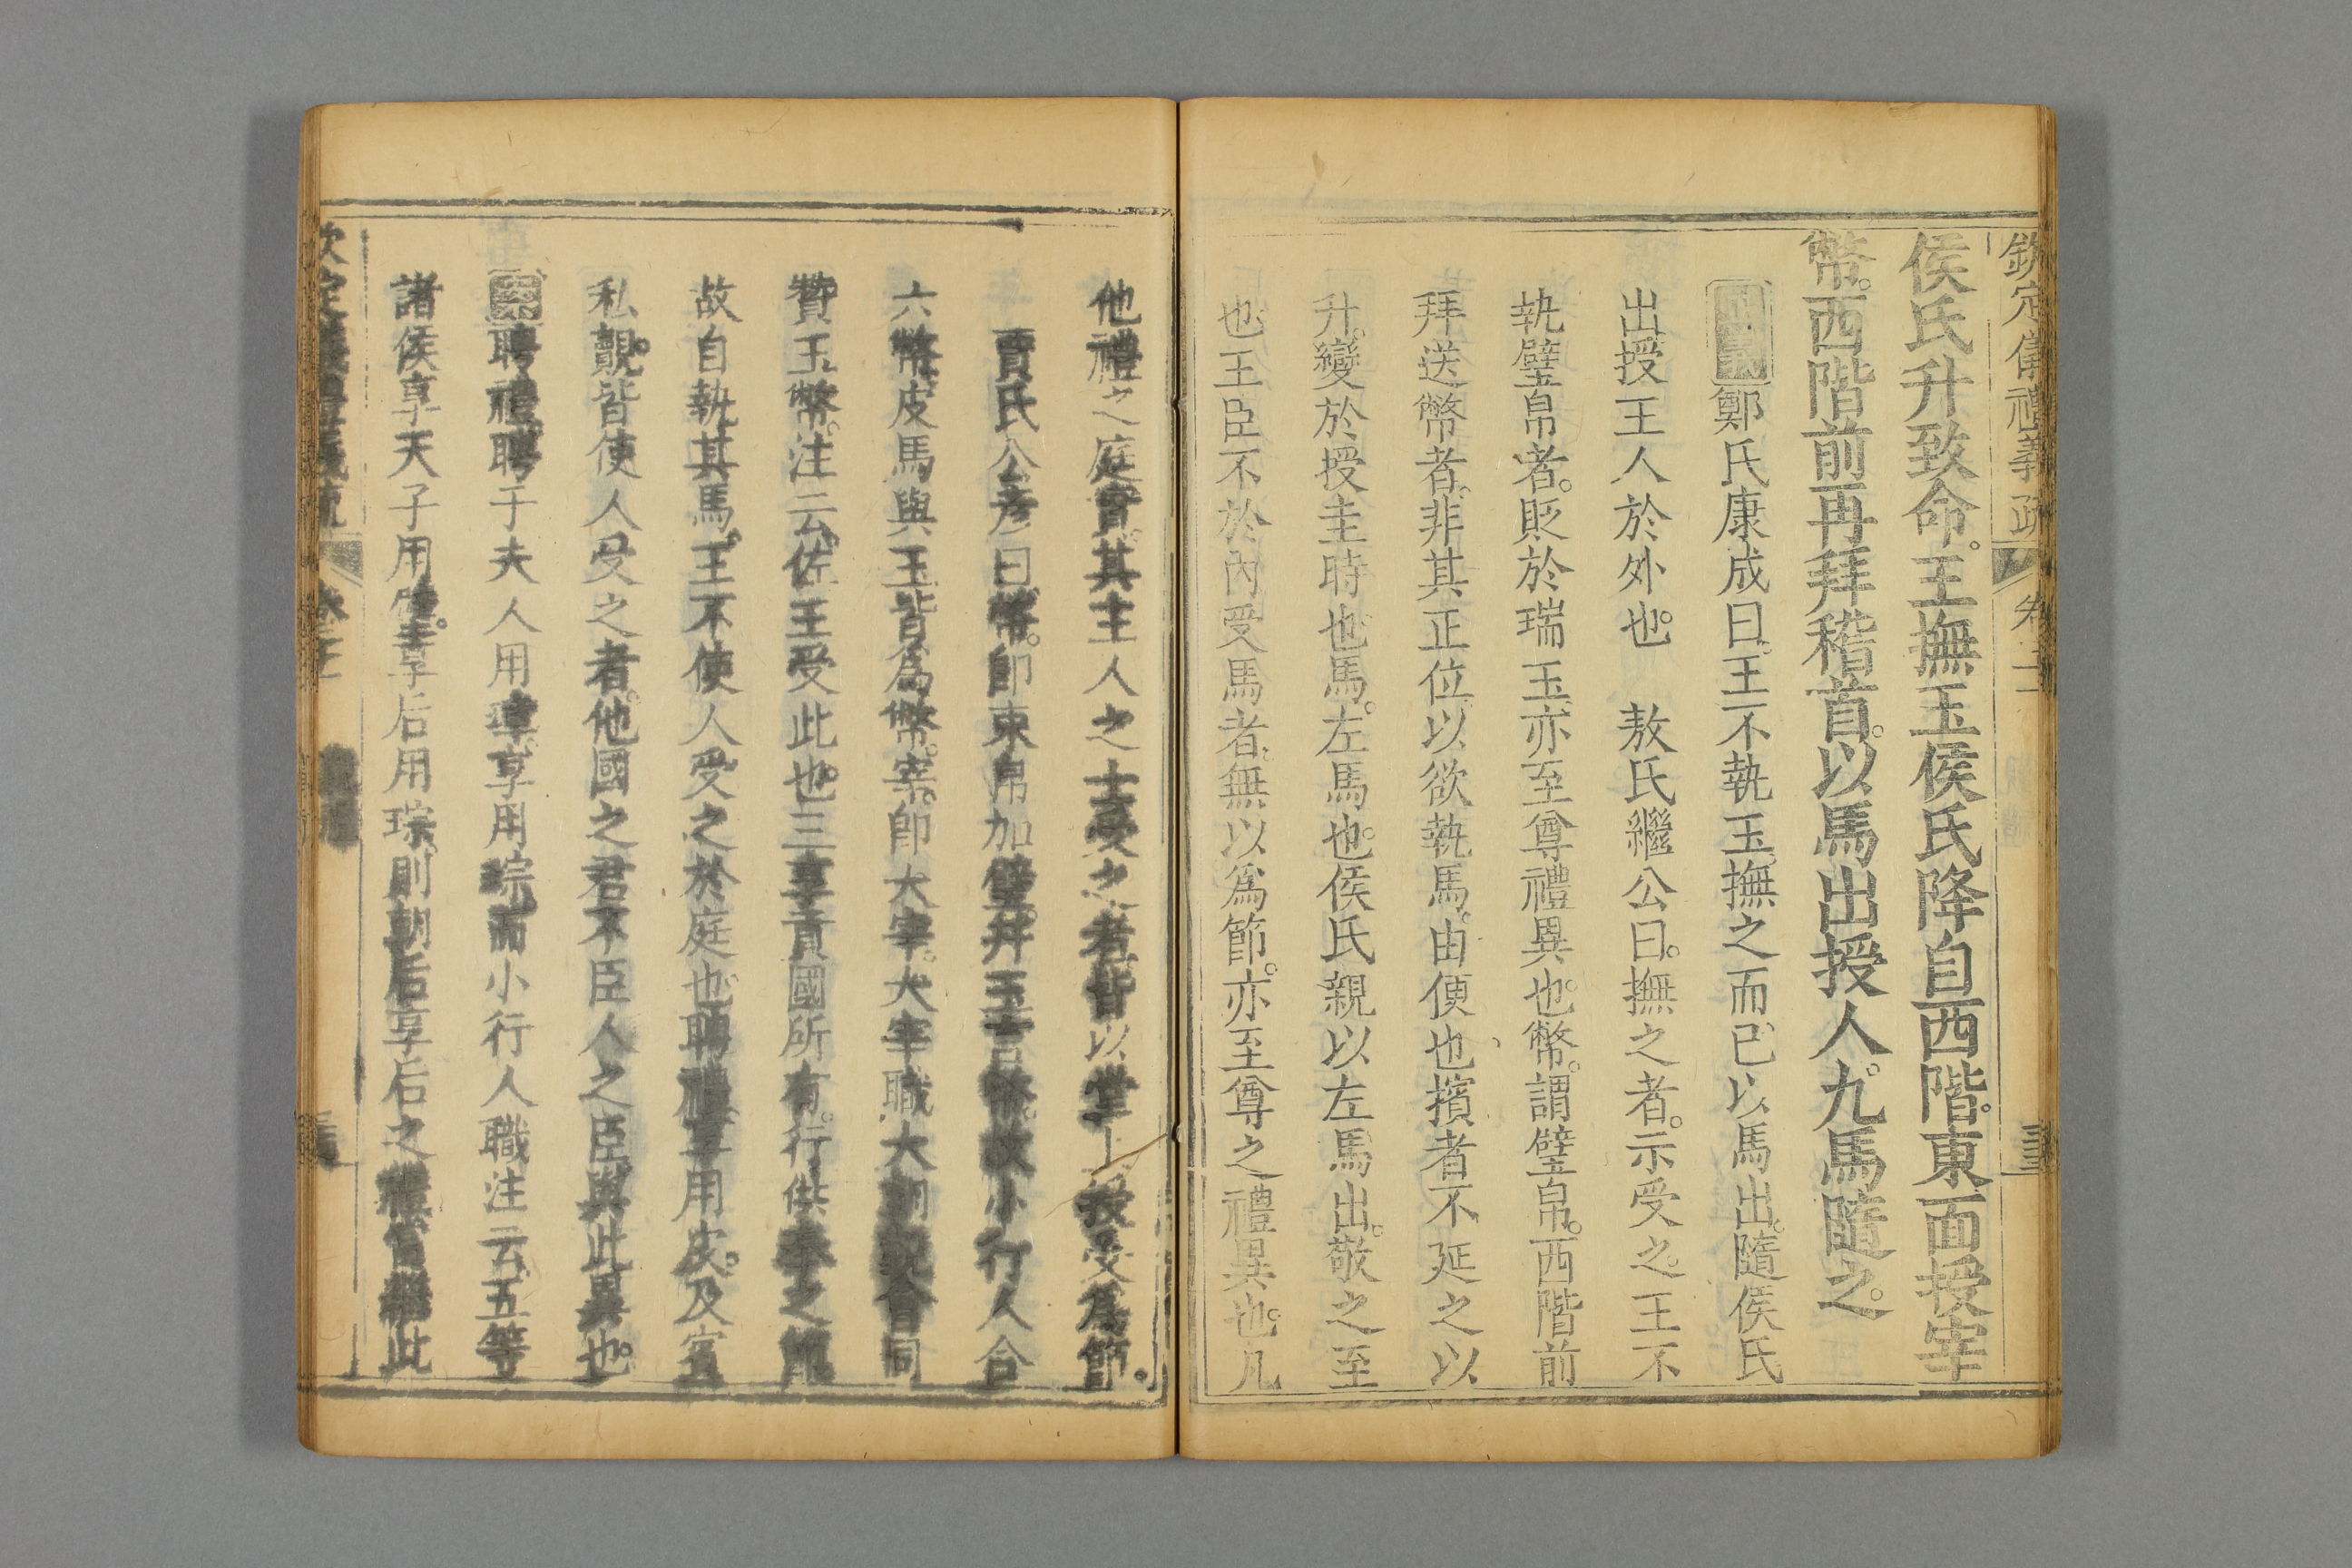 欽定儀禮義疏 卷二
侯氏升致命。王撫玉侯氏降自西階。東面授宰
幣。西階前再拜稽首。以馬出授人。九馬隨之。
正義鄭氏康成曰。王不執玉。撫之而已。以馬出。隨侯氏
出授王人於外也。 敖氏繼公曰。撫之者。示受之。王不
執璧帛者。貶於瑞玉。亦至尊禮異也。幣。謂璧帛。西階前
拜送幣者。非其正位。以欲執馬。由便也。擯者不延之以
升。變於授圭時也。馬。左馬也。侯氏親以左馬出。敬之至
也。王臣不於內受馬者。無以爲節。亦至尊之禮異也。凡
他禮之庭實。其主人之士受之者。皆以堂上授受爲節。
賈氏公彥曰。幣。卽束帛加璧。幷玉言幣。故小行人合
六幣。皮馬與玉皆爲幣。宰。卽大宰。大宰職大朝覲會同
贊玉幣。注云。佐王受此也。三享貢國所有。行供奉之節
故自執其馬。王不使人受之於庭也。聘禮享用皮。及賓
私覿。皆使人受之者。他國之君不臣人之臣。與此異也。
案聘禮聘于夫人用璋。享用琮。而小行人職注云。五等
諸侯享天子用璧。享后用琮。則朝后享后之禮當繼此
欽定儀禮義疏